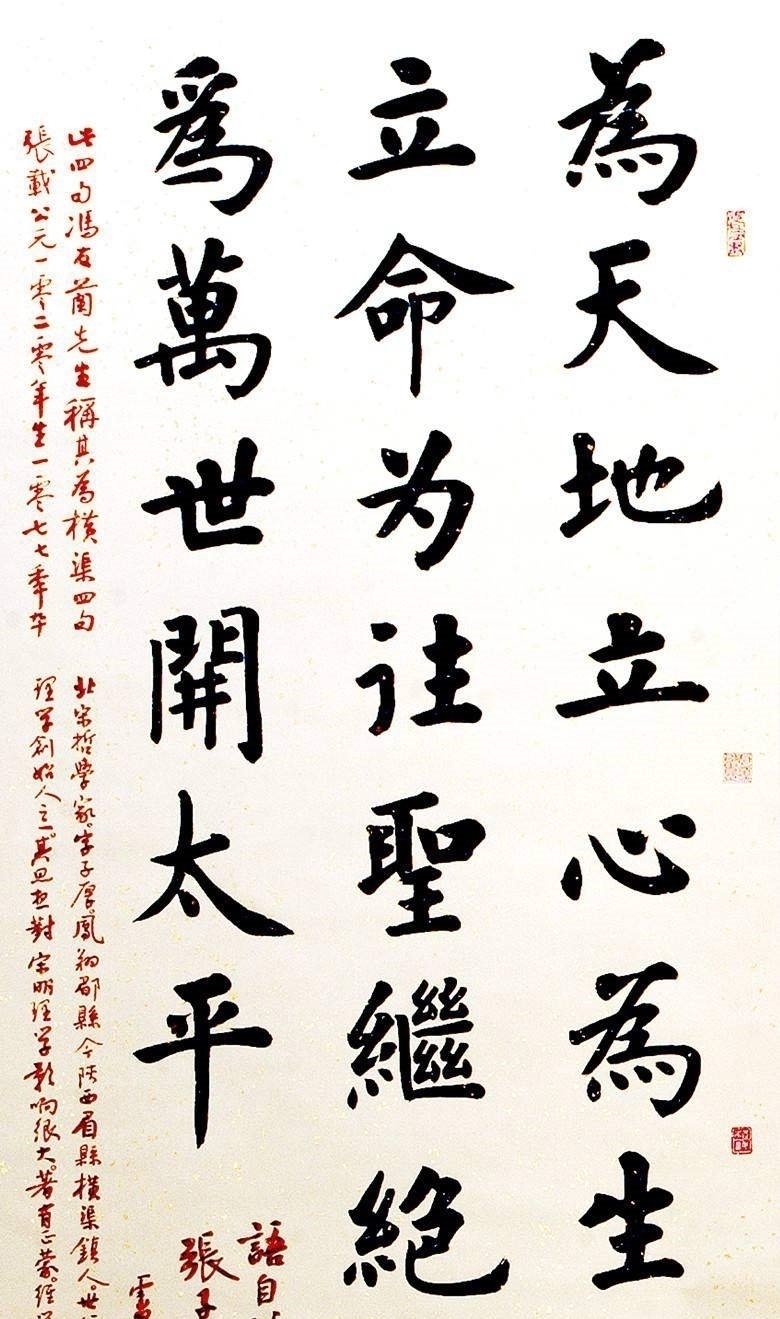 為天地立心為生
立命为往聖繼絕
爲萬世開太平
語自
張子
此四句馮友蘭先生稱其為橫渠四句
張載公元一零二零年生一零七七年卒
北宋哲學家字子厚鳳翔郿縣今陝西眉縣橫渠鎮人。世
理学創始人之一。其思想對宋明理学影响很大。著有正蒙。經学